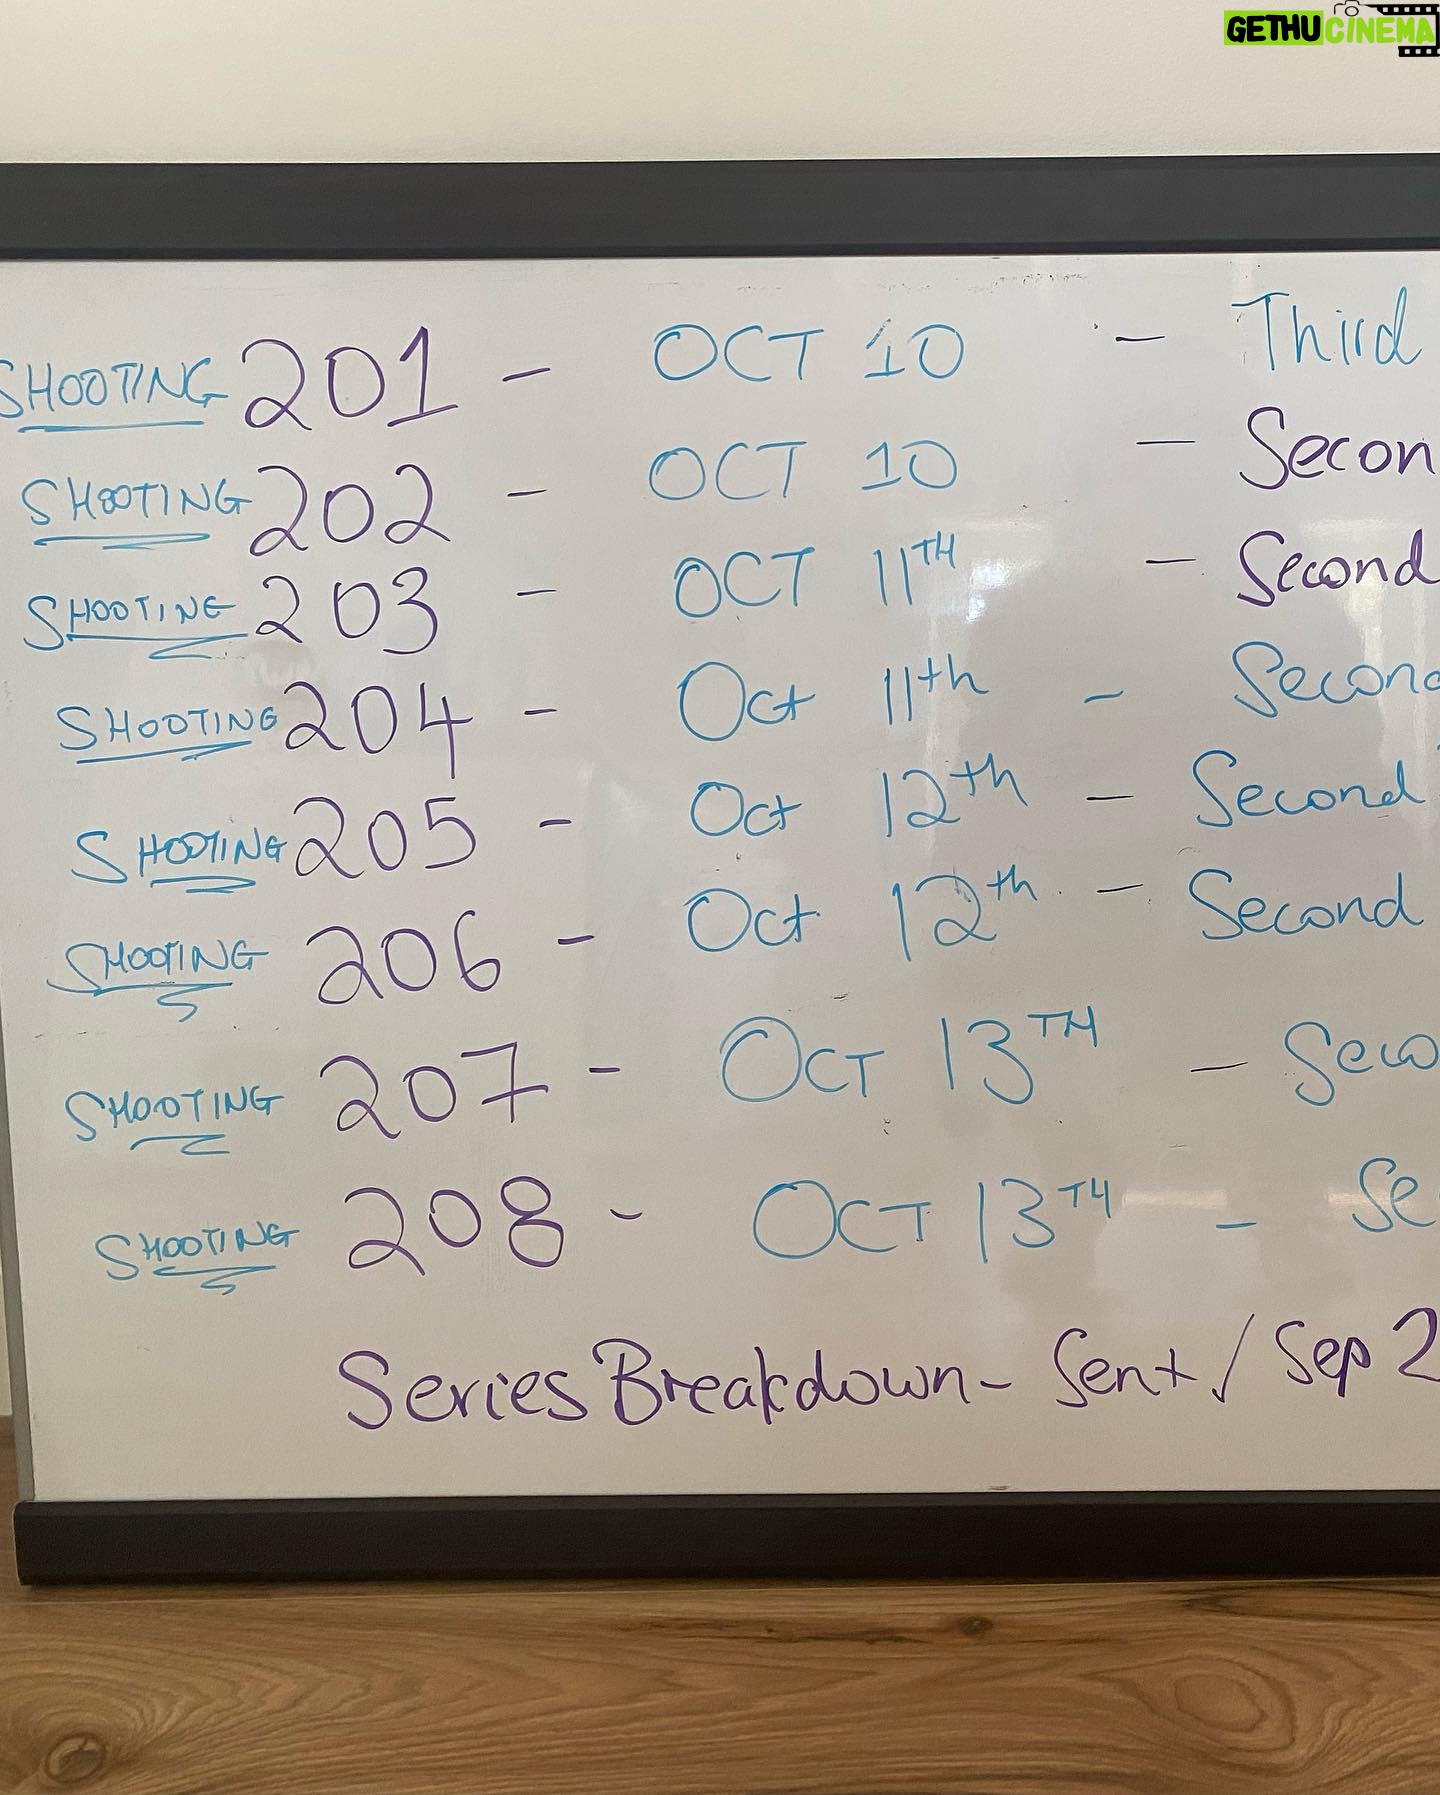 GETHUCINEMA
SHOOTING 201 - OCT 10 - Third
SHOOTING 202 - OCT 10 - Secon
SHOOTING 203 - OCT 11TH - Second
SHOOTING 204 - Oct 11th - Second
SHOOTING 205 - Oct 12th - Second
SHOOTING 206 - Oct 12th - Second
SHOOTING 207 - OCT 13TH - Seco
SHOOTING 208 - OCT 13TH - Se
Series Breakdown - Sent / Sep 2